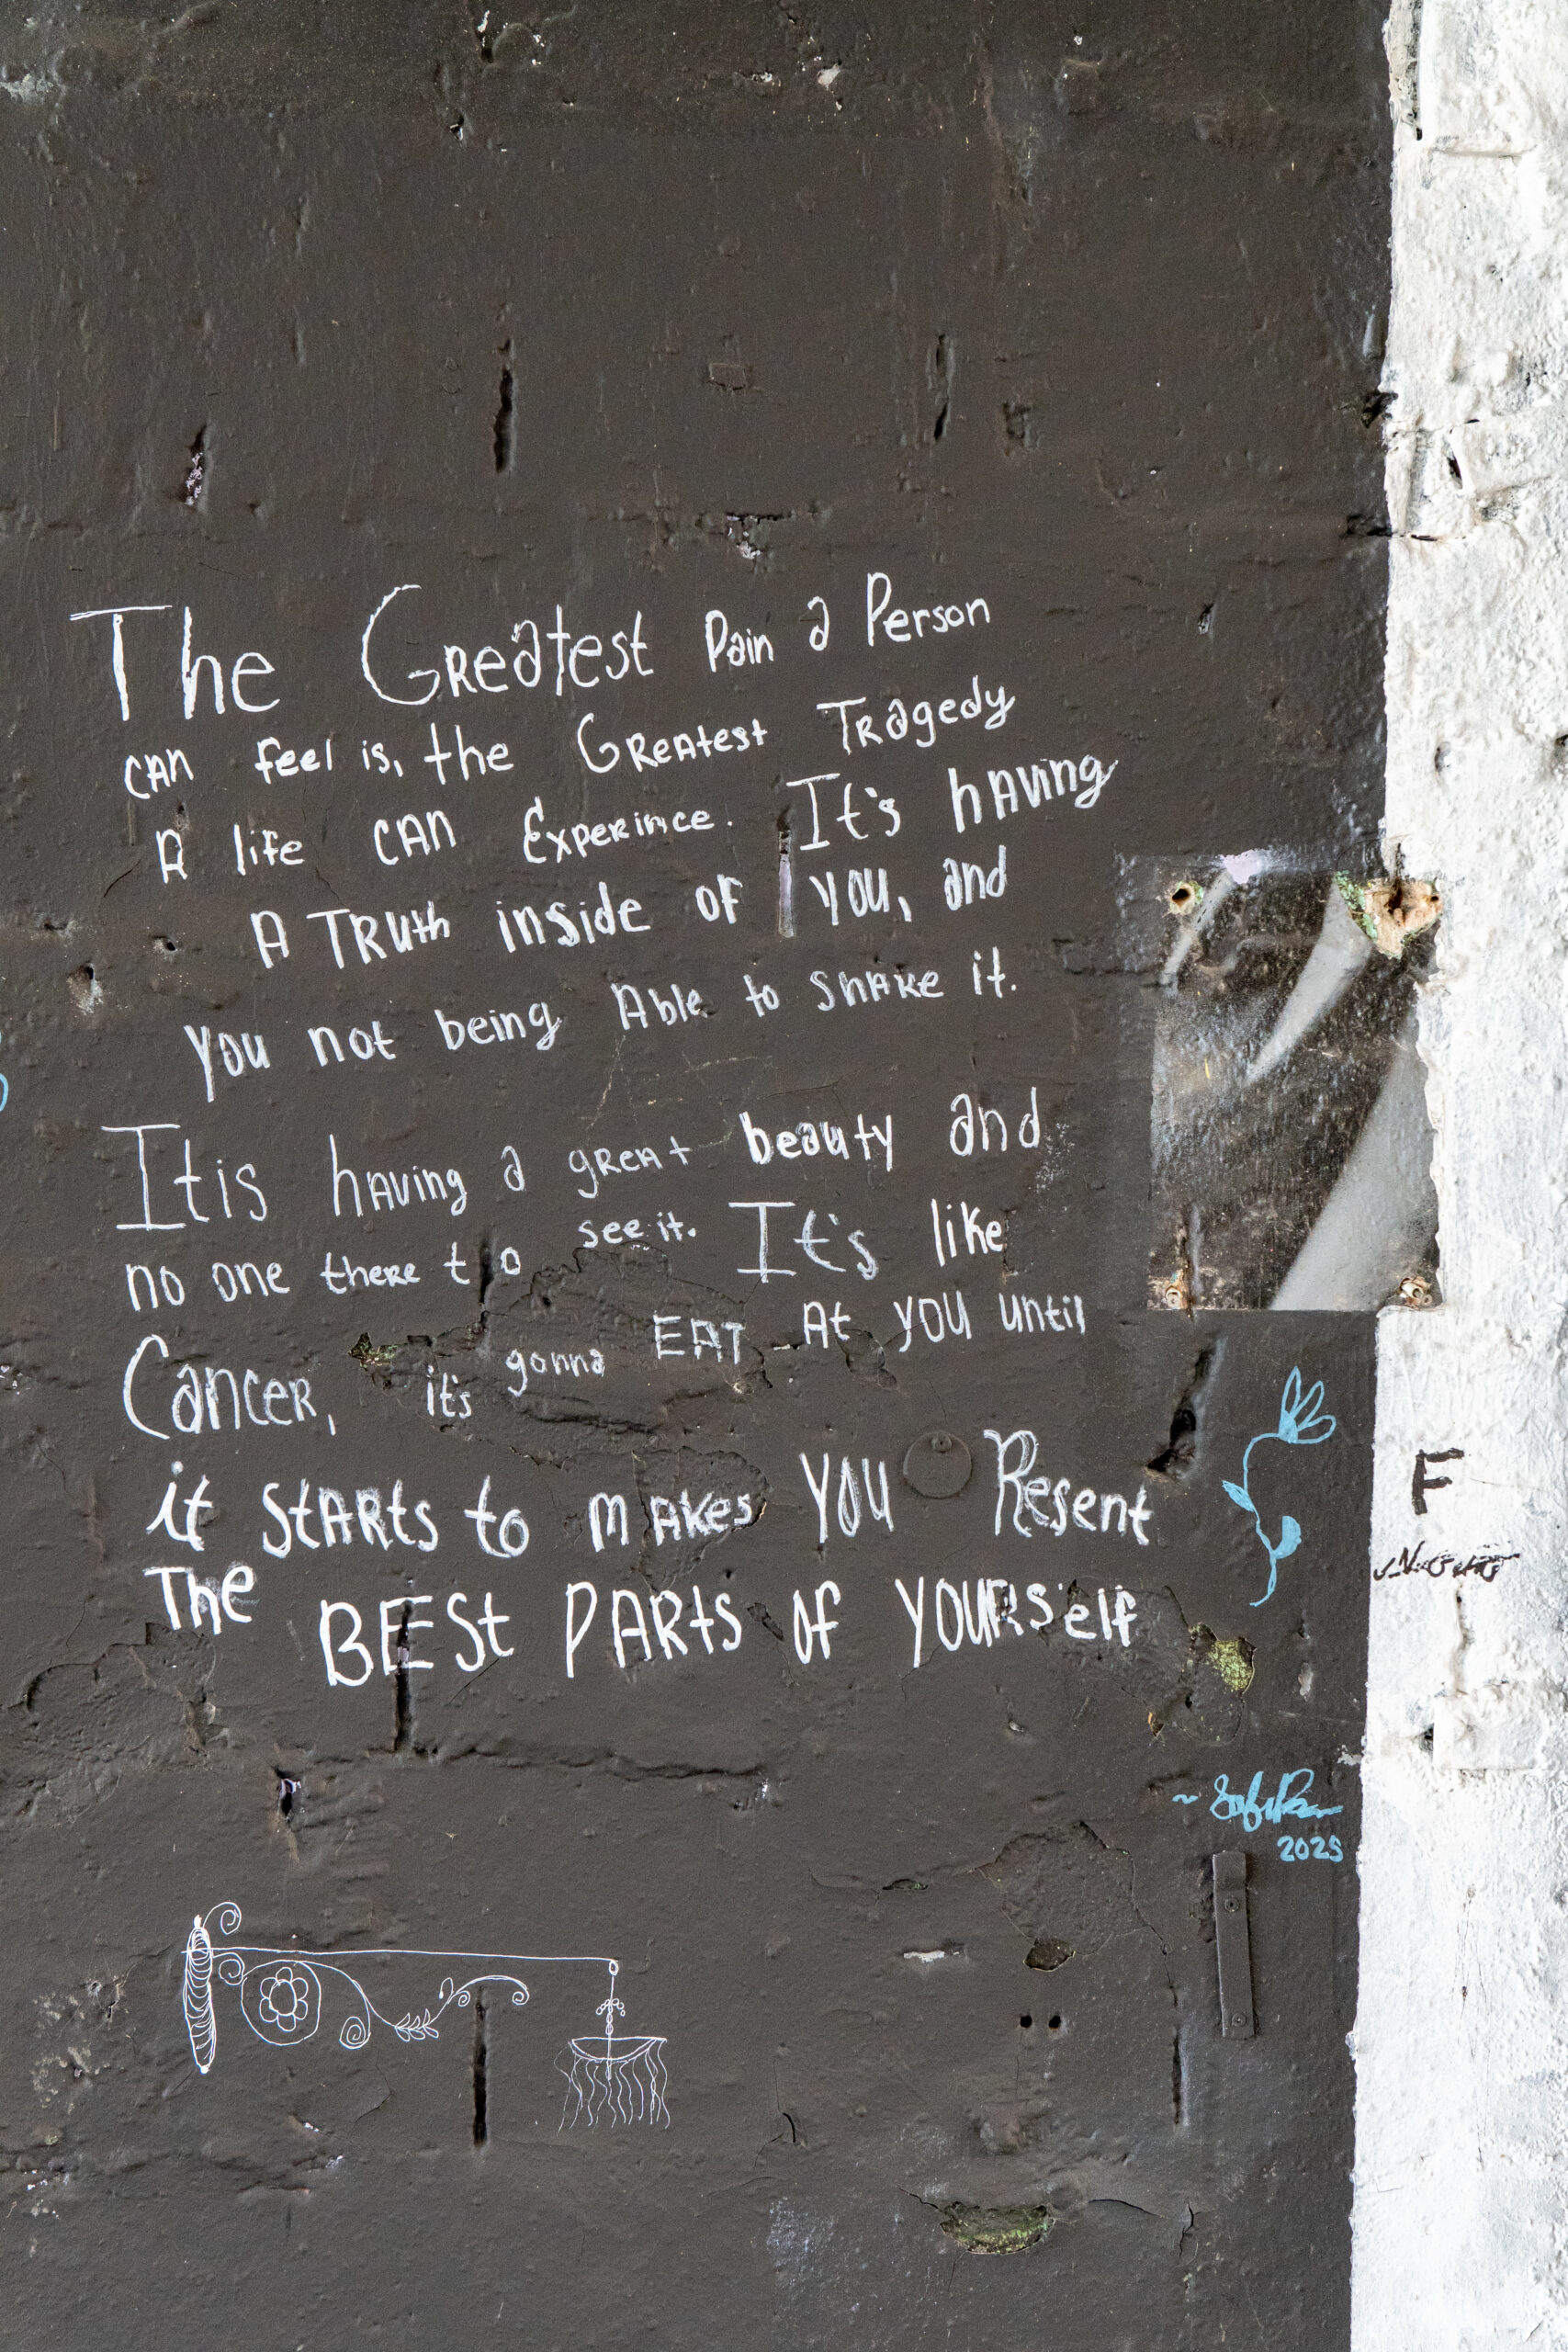 The Greatest Pain a Person
CAN feel is, the GReAtest TRagedy
A life CAN Experince. It's hAving
A TRuth inside of you, and
you not being Able to ShAke it.
It is hAving a gReAt beauty and
no one there to see it. It's like
CanceR, it's gonna EAT At you until
it StARts to mAkes you Resent
The BESt PARts of YOURSelf
2025
F